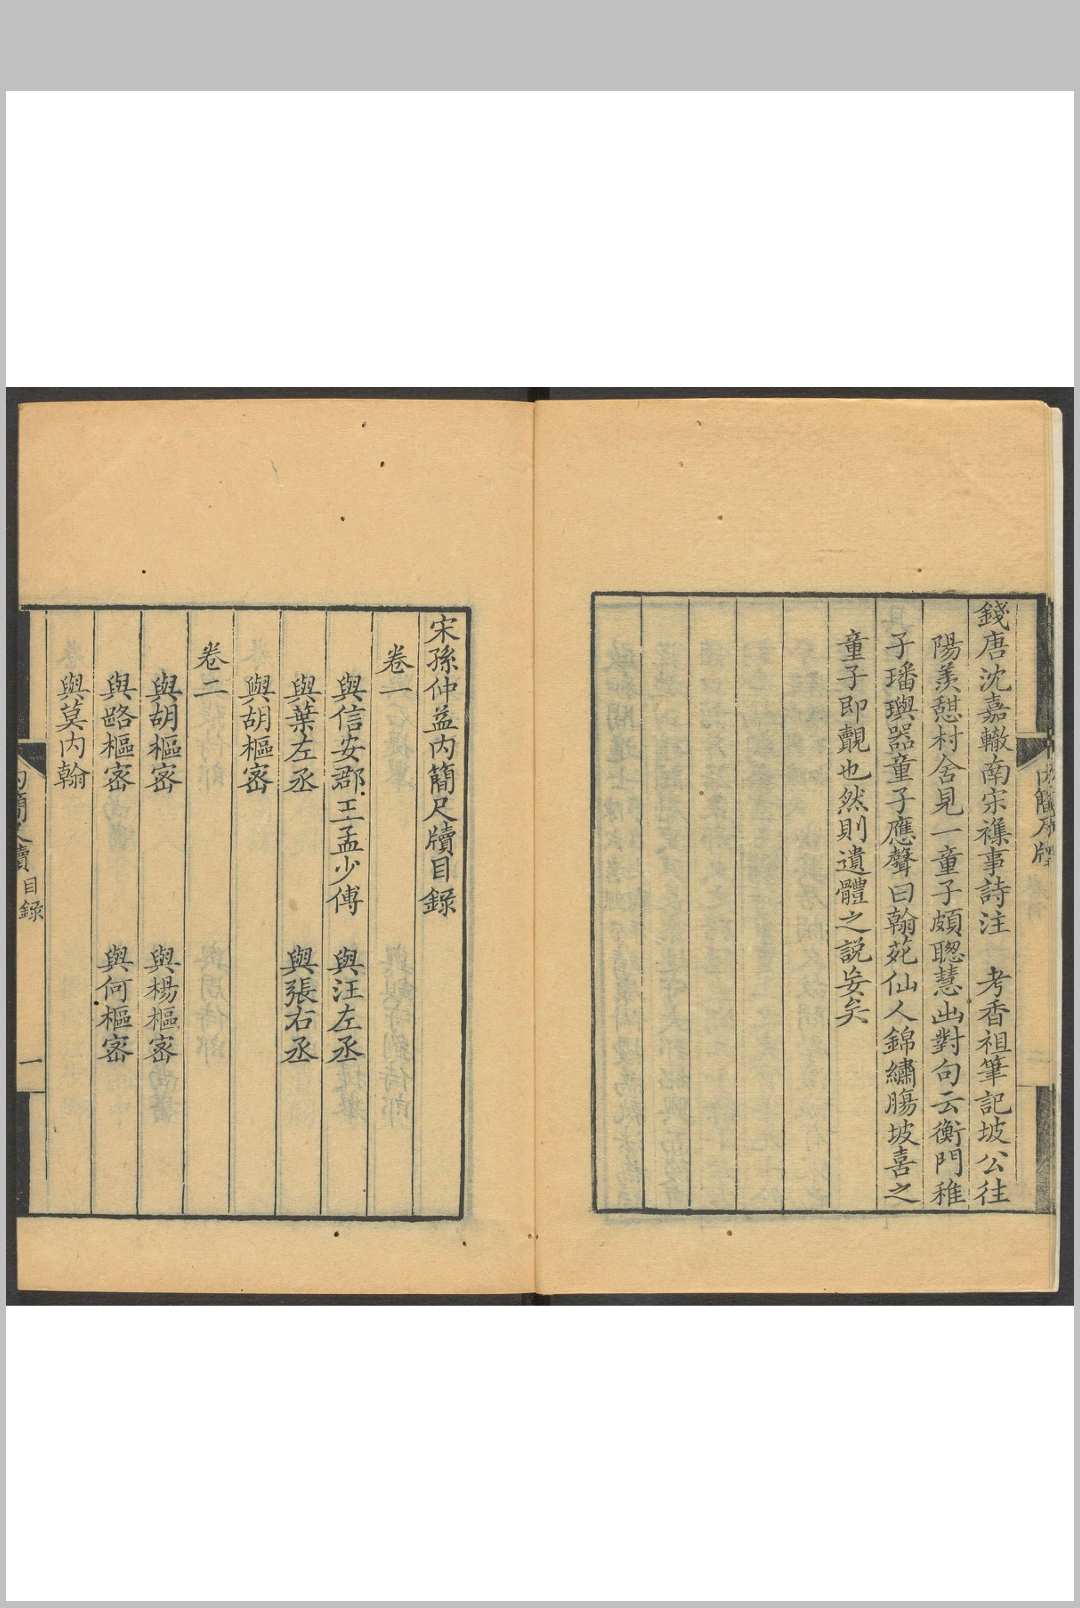 錢唐沈嘉轍南宋襍事詩注 考香祖筆記坡公往
陽羨憇村舍見一童子頗聦慧出對句云衡門稚
子璠璵器童子應聲曰翰苑仙人錦繡膓坡喜之
童子即覿也然則遺體之說妄矣
宋孫仲益内簡尺牘目錄
卷一
與信安郡王孟少傅 與汪左丞
與葉左丞 與張右丞
與胡樞密
卷二
與胡樞密 與楊樞密
與路樞密 與何樞密
與莫内翰
内簡尺牘 目録 一